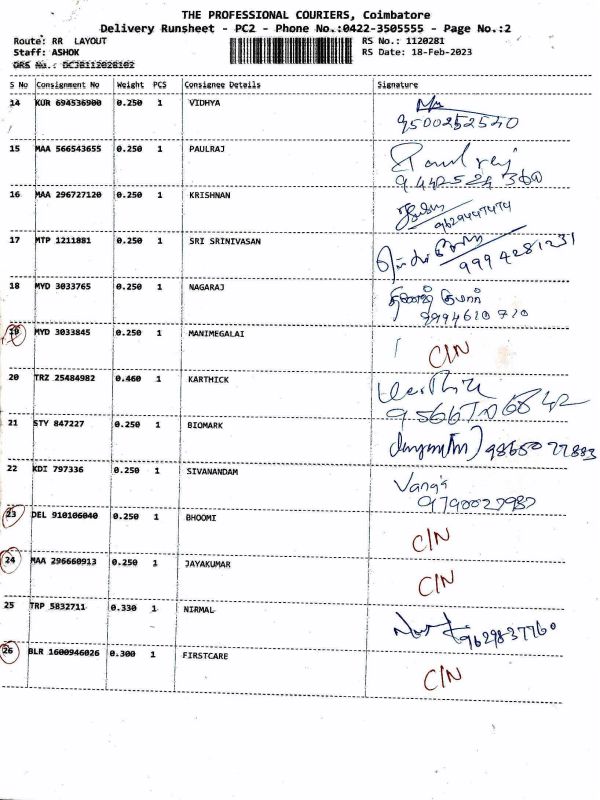 THE PROFESSIONAL COURIERS, Coimbatore
Delivery Runsheet - PC2 - Phone No.:0422-3505555 - Page No.:2
Route: RR LAYOUT
RS No.: 1120281
Staff: ASHOK
RS Date: 18-Feb-2023
DRS No.: DCJB112028102
S No Consignment No Weight PCS Consignee Details Signature
14 KUR 694536900 0.250 1 VIDHYA
9500252540
15 MAA 566543655 0.250 1 PAULRAJ Paulraj
16 MAA 296727120 0.250 1 KRISHNAN
9629447474
17 MTP 1211881 0.250 1 SRI SRINIVASAN
9994281231
18 MYD 3033765 0.250 1 NAGARAJ
9994610720
19 MYD 3033845 0.250 1 MANIMEGALAI C/N
20 TRZ 25484982 0.460 1 KARTHICK Karthik
21 STY 847227 0.250 1 BIOMARK
22 KDI 797336 0.250 1 SIVANANDAM
9790027987
23 DEL 910106040 0.250 1 BHOOMI C/N
24 MAA 296660913 0.250 1 JAYAKUMAR C/N
25 TRP 5832711 0.330 1 NIRMAL 9629837760
26 BLR 1600946026 0.300 1 FIRSTCARE C/N